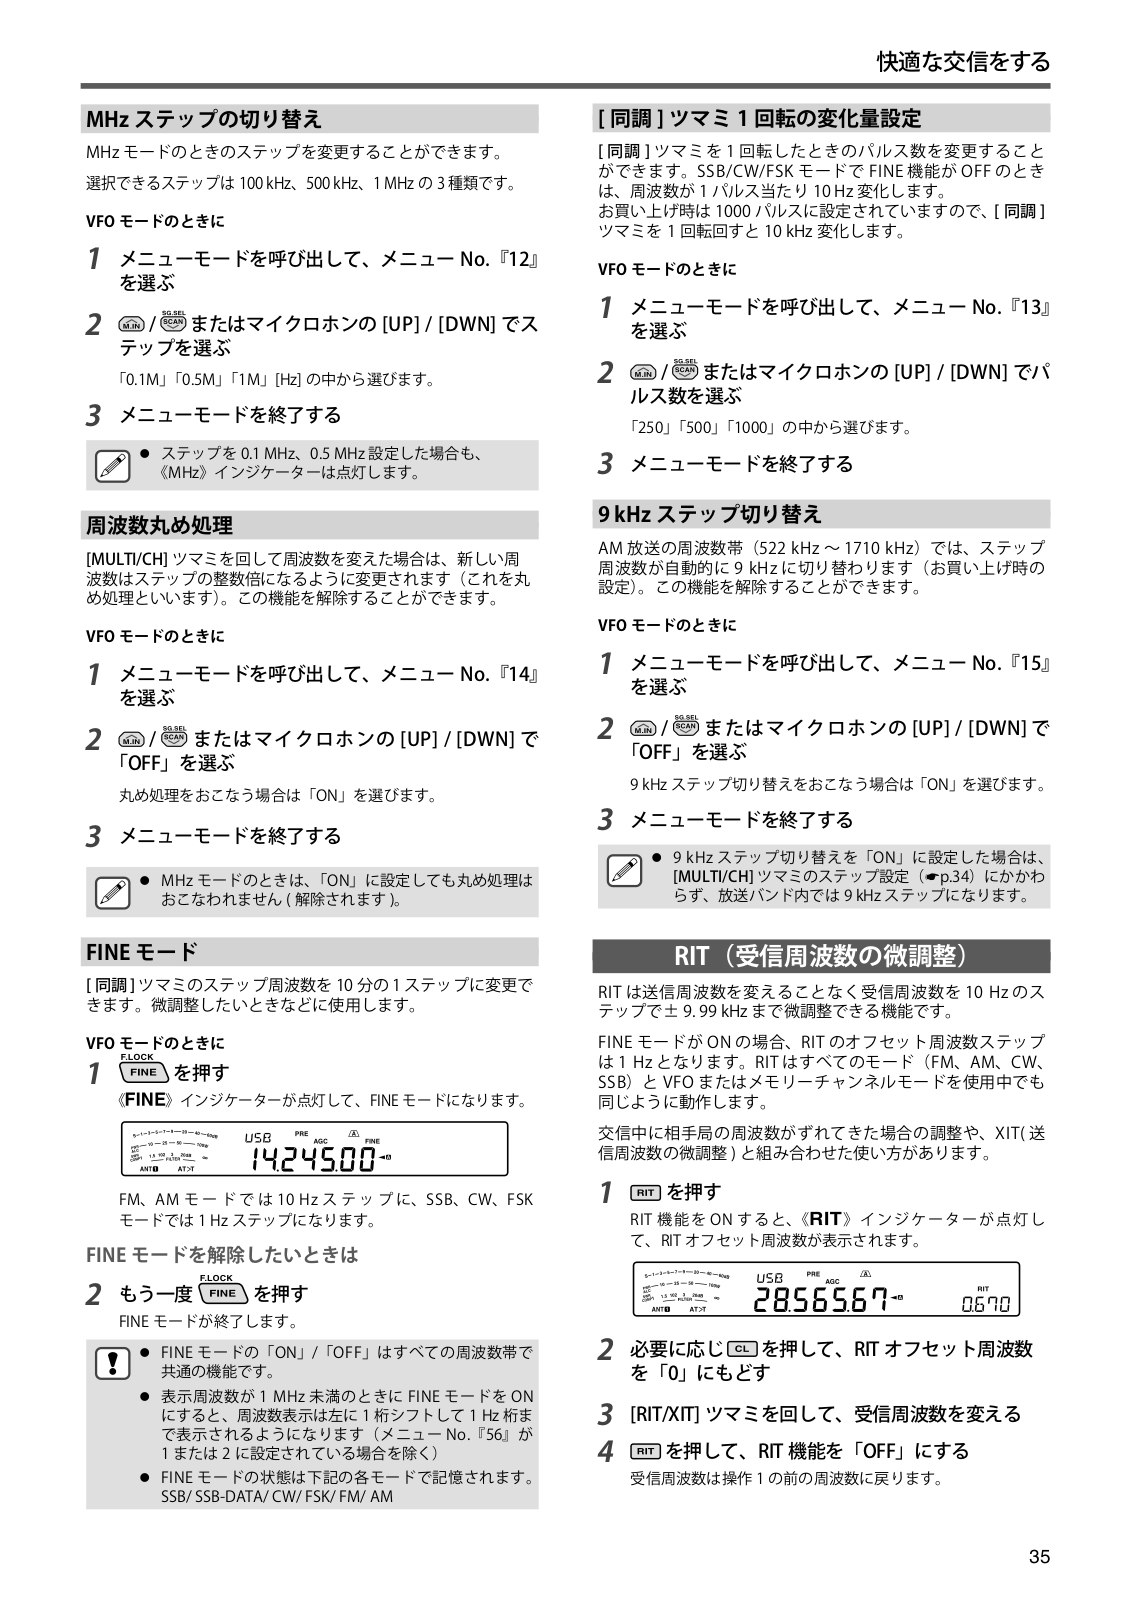 快適な交信をする
MHz ステップの切り替え
MHz モードのときのステップを変更することができます。
選択できるステップは 100 kHz、500 kHz、1 MHz の 3 種類です。
VFO モードのときに
1 メニューモードを呼び出して、メニュー No.『12』
を選ぶ
SG.SEL
2 M.IN / SCAN またはマイクロホンの [UP] / [DWN] でス
テップを選ぶ
「0.1M」「0.5M」「1M」[Hz] の中から選びます。
3 メニューモードを終了する
● ステップを 0.1 MHz、0.5 MHz 設定した場合も、
《MHz》インジケーターは点灯します。
周波数丸め処理
[MULTI/CH] ツマミを回して周波数を変えた場合は、新しい周
波数はステップの整数倍になるように変更されます（これを丸
め処理といいます）。この機能を解除することができます。
VFO モードのときに
1 メニューモードを呼び出して、メニュー No.『14』
を選ぶ
SG.SEL
2 M.IN / SCAN またはマイクロホンの [UP] / [DWN] で
「OFF」を選ぶ
丸め処理をおこなう場合は「ON」を選びます。
3 メニューモードを終了する
● MHz モードのときは、「ON」に設定しても丸め処理は
おこなわれません ( 解除されます )。
FINE モード
[ 同調 ] ツマミのステップ周波数を 10 分の 1 ステップに変更で
きます。微調整したいときなどに使用します。
VFO モードのときに
F.LOCK
1 FINE を押す
《FINE》インジケーターが点灯して、FINE モードになります。
USB PRE AGC A FINE
14.245.00 ◄A
ANT 1 AT>T
FM、AM モードでは 10 Hz ステップに、SSB、CW、FSK
モードでは 1 Hz ステップになります。
FINE モードを解除したいときは
F.LOCK
2 もう一度 FINE を押す
FINE モードが終了します。
● FINE モードの「ON」/「OFF」はすべての周波数帯で
共通の機能です。
● 表示周波数が 1 MHz 未満のときに FINE モードを ON
にすると、周波数表示は左に 1 桁シフトして 1 Hz 桁ま
で表示されるようになります（メニュー No.『56』が
1 または 2 に設定されている場合を除く）
● FINE モードの状態は下記の各モードで記憶されます。
SSB/ SSB-DATA/ CW/ FSK/ FM/ AM
[ 同調 ] ツマミ 1 回転の変化量設定
[ 同調 ] ツマミを 1 回転したときのパルス数を変更すること
ができます。SSB/CW/FSK モードで FINE 機能が OFF のとき
は、周波数が 1 パルス当たり 10 Hz 変化します。
お買い上げ時は 1000 パルスに設定されていますので、[ 同調 ]
ツマミを 1 回転回すと 10 kHz 変化します。
VFO モードのときに
1 メニューモードを呼び出して、メニュー No.『13』
を選ぶ
SG.SEL
2 M.IN / SCAN またはマイクロホンの [UP] / [DWN] でパ
ルス数を選ぶ
「250」「500」「1000」の中から選びます。
3 メニューモードを終了する
9 kHz ステップ切り替え
AM 放送の周波数帯（522 kHz ～ 1710 kHz）では、ステップ
周波数が自動的に 9 kHz に切り替わります（お買い上げ時の
設定）。この機能を解除することができます。
VFO モードのときに
1 メニューモードを呼び出して、メニュー No.『15』
を選ぶ
SG.SEL
2 M.IN / SCAN またはマイクロホンの [UP] / [DWN] で
「OFF」を選ぶ
9 kHz ステップ切り替えをおこなう場合は「ON」を選びます。
3 メニューモードを終了する
● 9 kHz ステップ切り替えを「ON」に設定した場合は、
[MULTI/CH] ツマミのステップ設定（☛p.34）にかかわ
らず、放送バンド内では 9 kHz ステップになります。
RIT（受信周波数の微調整）
RIT は送信周波数を変えることなく受信周波数を 10 Hz のス
テップで± 9. 99 kHz まで微調整できる機能です。
FINE モードが ON の場合、RIT のオフセット周波数ステップ
は 1 Hz となります。RIT はすべてのモード（FM、AM、CW、
SSB）と VFO またはメモリーチャンネルモードを使用中でも
同じように動作します。
交信中に相手局の周波数がずれてきた場合の調整や、XIT( 送
信周波数の微調整 ) と組み合わせた使い方があります。
1 RIT を押す
RIT 機能を ON すると、《RIT》インジケーターが点灯し
て、RIT オフセット周波数が表示されます。
USB PRE AGC A
28.565.67 ◄A RIT 0.670
ANT 1 AT>T
2 必要に応じ CL を押して、RIT オフセット周波数
を「0」にもどす
3 [RIT/XIT] ツマミを回して、受信周波数を変える
4 RIT を押して、RIT 機能を「OFF」にする
受信周波数は操作 1 の前の周波数に戻ります。
35